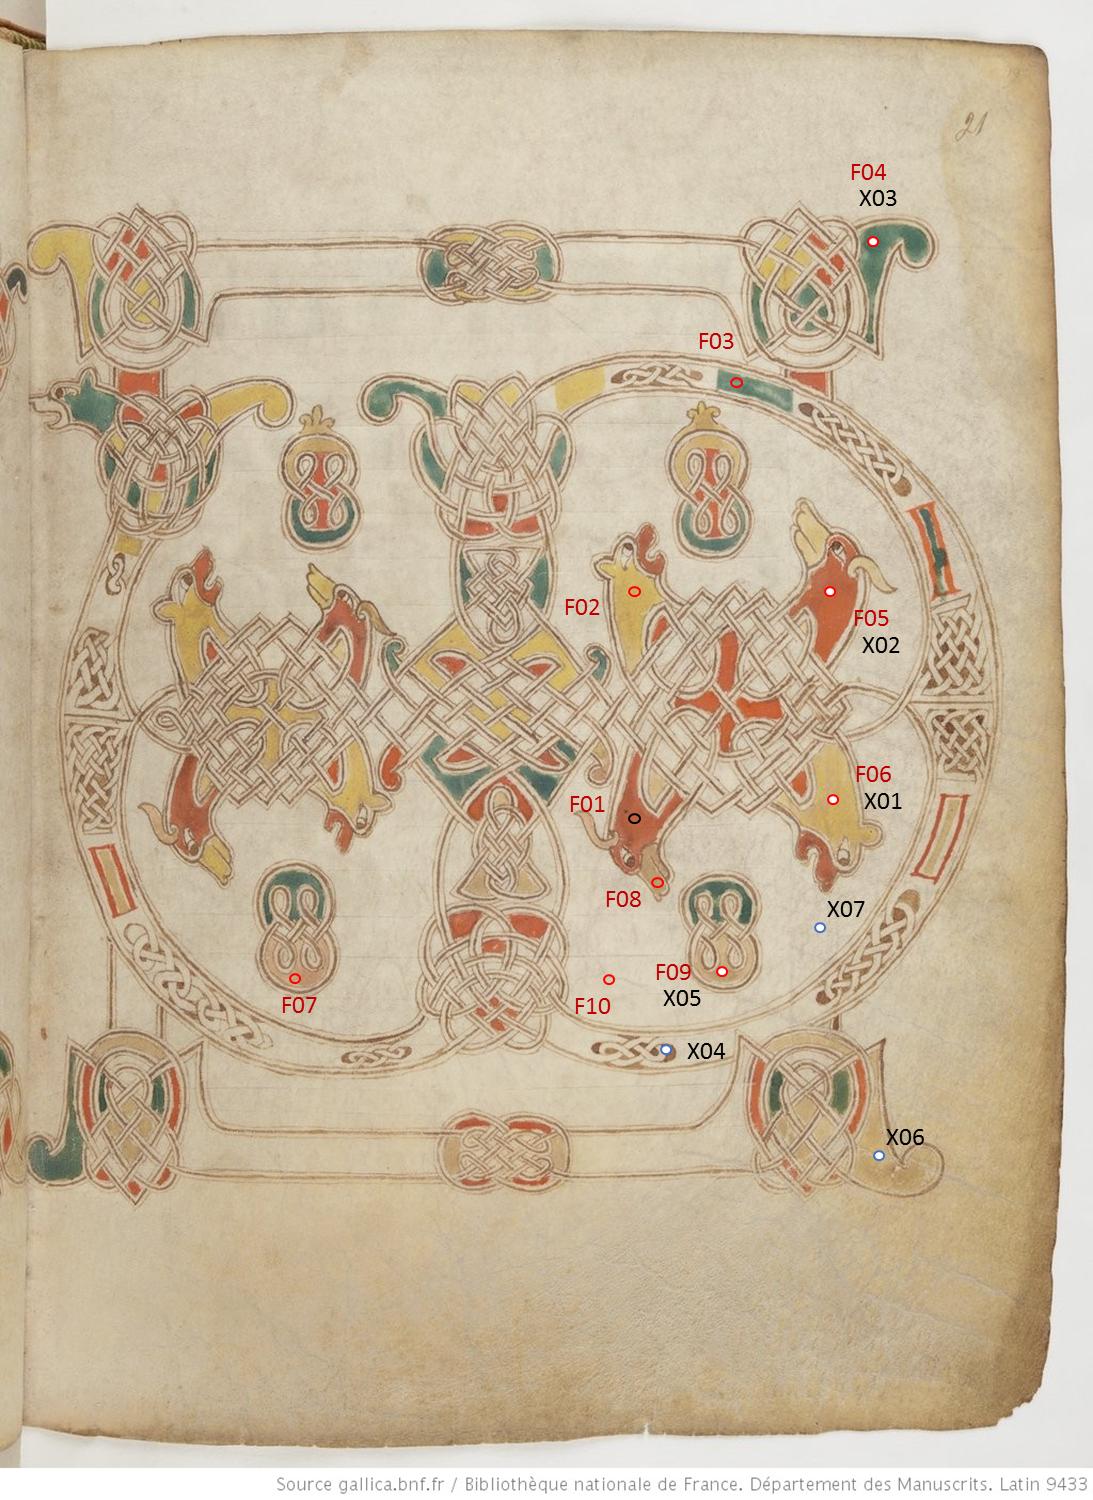 21
F04
X03
F03
F02
F05
X02
F06
X01
F01
F08
X07
F09
X05
F07
F10
X04
X06
Source gallica.bnf.fr / Bibliothèque nationale de France. Département des Manuscrits. Latin 9433